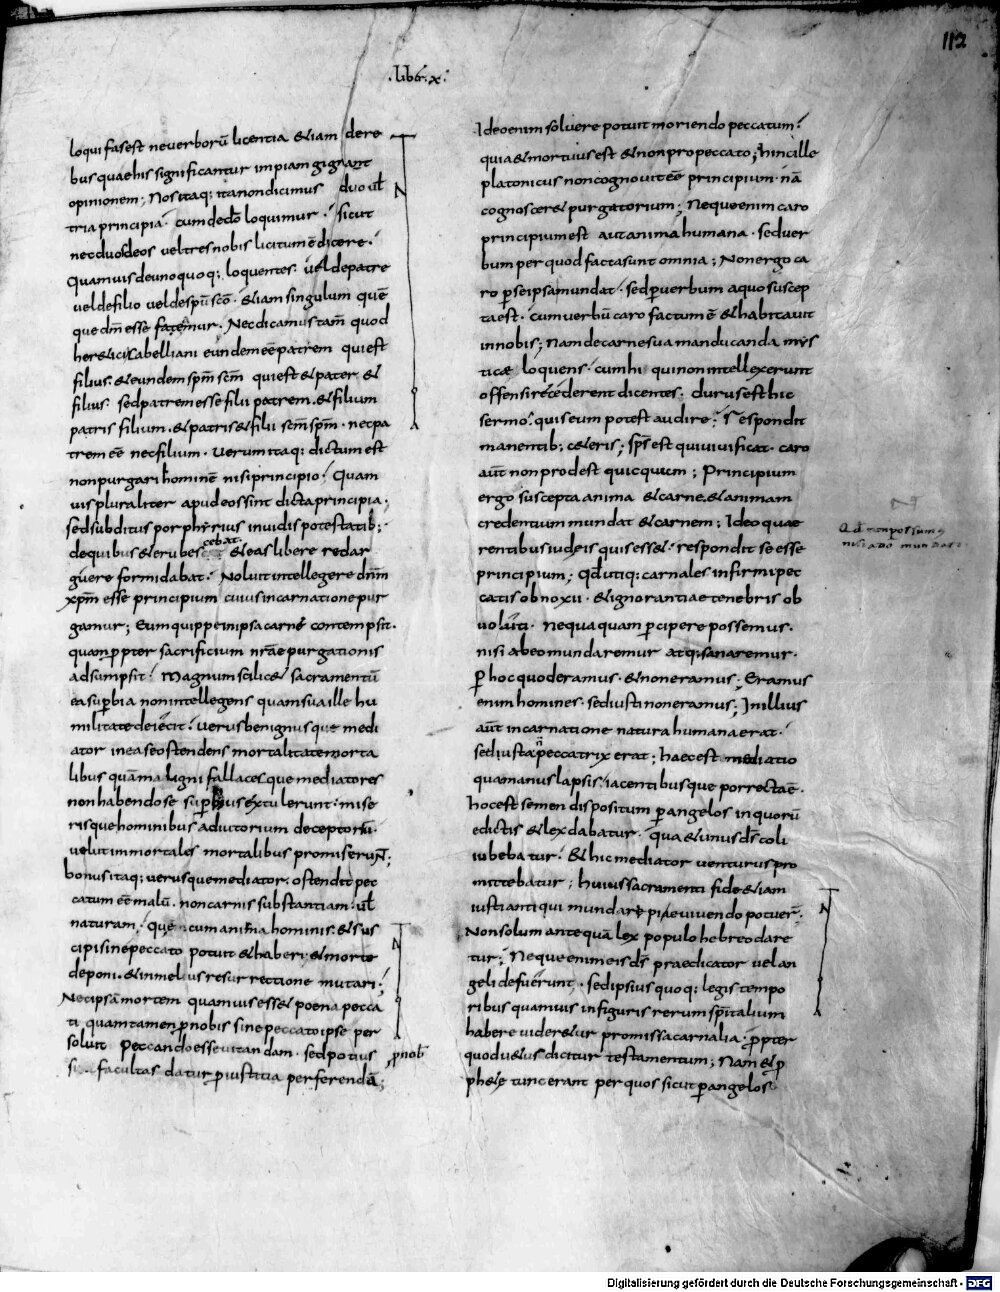 112
.lib&r. x.
loqui fas est ne uerborū licentia &iam de re
bus quae his significantur impiam gignant
opinionem; Nos itaq; ita non dicimus duo ul̄
tria principia. cum de dō loquimur. sicut
nec duos deos uel tres nobis licitum ē dicere.
Quamuis de unoquoq; loquentes. uel de patre
uel de filio uel de spū scō. &iam singulum quē
que dm̄ esse fatemur. Nec dicamus tam̄ quod
her&ici sabelliani eundem eē patrem qui est
filius. & eundem spm̄ scm̄ qui est & pater &
filius. sed patrem esse filii patrem. & filium
patris filium. & patris & filii scm̄ spm̄. nec pa
trem eē nec filium. Uerum itaq; dictum est
non purgari hominē nisi principio. Quam
uis pluraliter apud eos sint dicta principia;
sed subditus porphyrius inuidis potestatib;
de quibus & erubescebat & eas libere redar
guere formidabat. Noluit intellegere dnm̄
xpm̄ esse principium cuius incarnatione pur
gamur; Eum quippe in ipsa carne contempsit.
quam ppter sacrificium nrae purgationis
adsumpsit. Magnum scilic& sacramentū
ea supbia non intellegens quam sua ille hu
militate deiecit. uerus benignusque medi
ator in ea se ostendens mortalitate morta
libus quā maligni fallacesque mediatores
non habendo se superbius extulerunt. mise
risque hominibus adiutorium deceptoriū.
uelut immortales mortalibus promiserunt;
bonus itaq; uerusque mediator. ostendit pec
catum eē malū. non carnis substantiam. ul̄
naturam. que cum anima hominis. & sus
cipi sine peccato potuit & haberi. & morte
deponi. & in melius resurrectione mutari;
Nec ipsā mortem quamuis ess& poena pecca
ti quam tamen p nobis sine peccato ipse per
soluit peccando esse uitandam. sed potius
si facultas datur p iustitia perferendā;
p nob
Ideo enim soluere potuit moriendo peccatum.
quia & mortuus est & non pro peccato; hunc ille
platonicus non cognouit eē principium. nā
cognoscer& purgatorium; Neque enim caro
principium est aut anima humana. sed uer
bum per quod facta sunt omnia; Non ergo ca
ro p se ipsa mundat. sed p uerbum a quo suscep
ta est. cum uerbū caro factum ē & habitauit
in nobis; Nam de carne sua manducanda mys
ticae loquens. cum hi qui non intellexerunt
offensi recederent dicentes. durus est hic
sermo. quis eum potest audire; respondit
manentib; c&eris; sps est qui uiuificat. caro
aut̄ non prodest quicquam; Principium
ergo suscepta anima & carne. & animam
credentium mundat & carnem; Ideo quae
rentibus iudeis quis ess&. respondit se esse
principium; Qd utiq; carnales infirmi pec
catis obnoxii. & ignorantiae tenebris ob
uoluti. nequaquam pcipere possemus.
nisi ab eo mundaremur atq; sanaremur.
P hoc quod eramus. & non eramus; Eramus
enim homines. sed iusti non eramus; In illius
aut̄ incarnatione natura humana erat.
sed iusta n̄ peccatrix erat; haec est mediatio
qua manus lapsis iacentibusque porrecta ē.
hoc est semen dispositum p angelos in quorū
edictis & lex dabatur. qua & unus ds̄ coli
iubebatur. & hic mediator uenturus pro
mittebatur; huius sacramenti fide &iam
iusti antiqui mundari piae uiuendo potuer̄.
Non solum ante quā lex populo hebreo dare
tur; Neque enim eis ds̄ praedicator uel an
geli defuerunt. sed ipsius quoq; legis tempo
ribus quamuis in figuris rerum spitalium
habere uider&ur promissa carnalia. ppter
quod u&us dicitur testamentum; Nam & p
ph&ę tunc erant per quos sicut p angelos
Qd non possumus
nisi a dō mundari
Digitalisierung gefördert durch die Deutsche Forschungsgemeinschaft - DFG